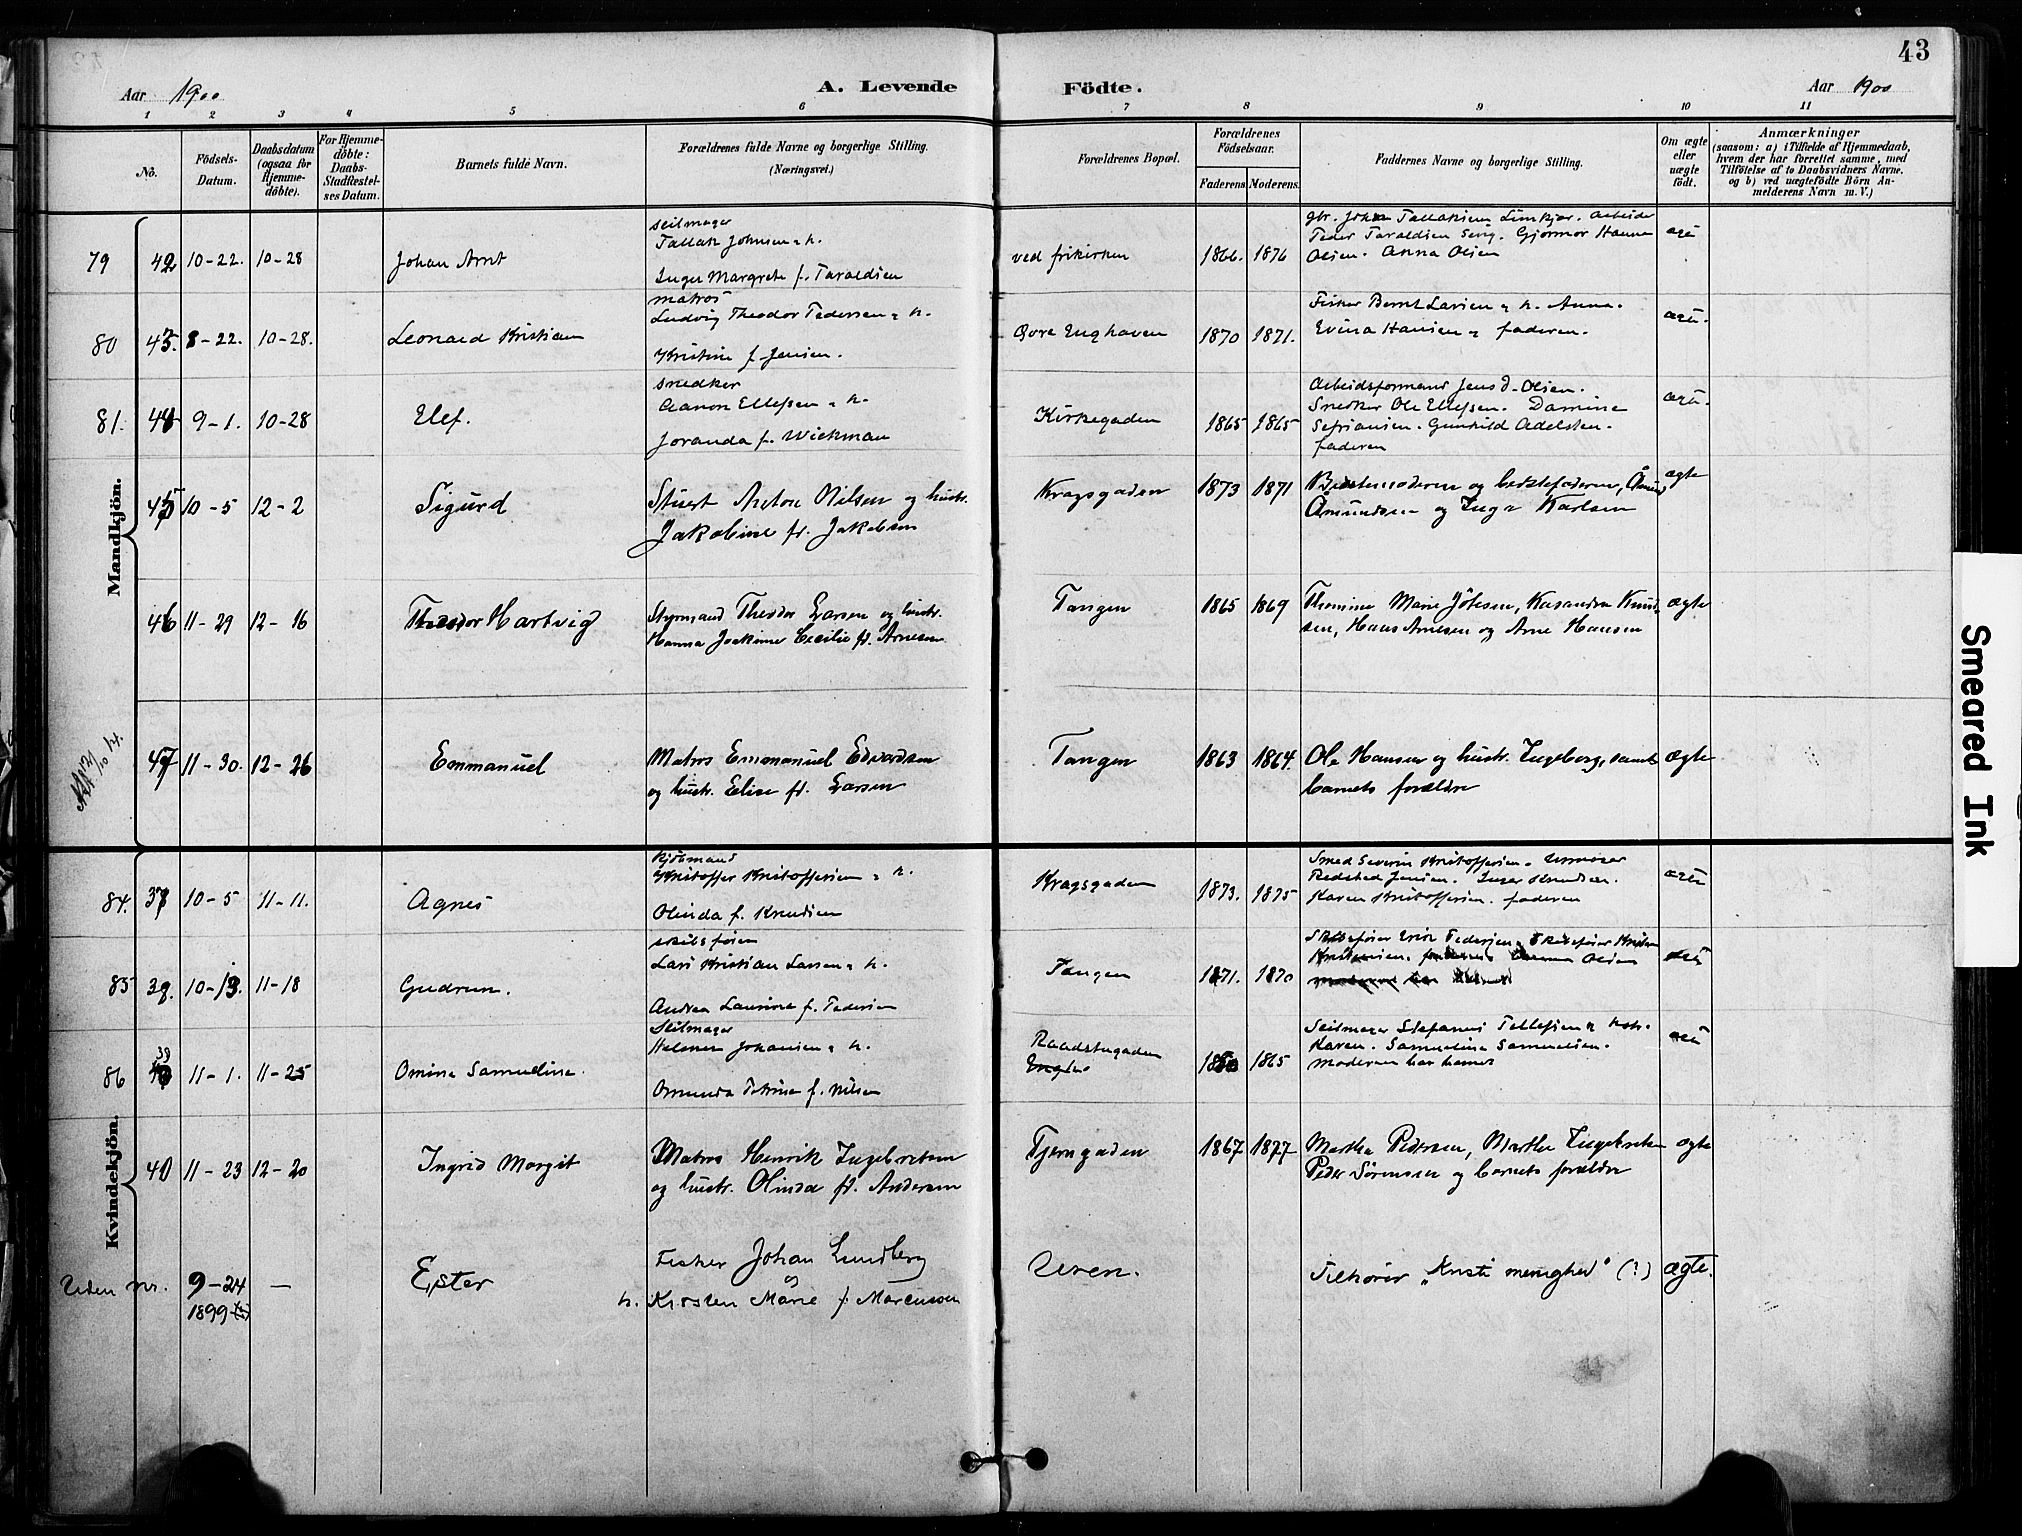 43
Aar 1900
A. Levende
Födte.
Aar 1900
1 2 3 4 5 6 7 8 9 10 11
No.
Födsels-Datum.
Daabsdatum (ogsaa for Hjemme-döbte).
For Hjemme-döbte: Daabs-Stadfæstel-ses Datum.
Barnets fulde Navn.
Forældrenes fulde Navne og borgerlige Stilling. (Næringsvei.)
Forældrenes Bopæl.
Forældrenes Födselsaar.
Faderens. Moderens.
Faddernes Navne og borgerlige Stilling.
Om ægte eller uægte födt.
Anmærkninger
(saasom: a) i Tilfælde af Hjemmedaab, hvem der har forrettet samme, med Tilföielse af to Daabsvidners Navne. og b) ved uægtefödte Börn An-melderens Navn m. V.)
Mandkjön.
79 42 10-22. 10-28 Johan Arnt
seilmager
Tallak Johnsen & h.
Inger Margrete f. Taraldsen
ved frikirken 1866. 1876
Olsen. Anna Olsen
80 43. 8-22. 10-28. Leonard Kristian
matros
Ludvig Theodor Pedersen & h.
Kristine f. Jensen.
Øvre Enghaven 1870 1871.
Fisker Bernt Larsen & h. Anna.
Evina Hansen & faderen.
81. 44 9-1. 10-28 Elef.
snedker
Aanon Ellefsen & h.
Joranda f. Wickman
Kirkegaden 1865 1865
Arbeidsformand Jens J. Olsen.
Snedker Ole Ellefsen. Damine
Sefriansen. Gunhild Adelsten.
faderen
45 10-5 12-2 Sigurd
Stuert Anton Nilsen og hustr.
Jakobine fd. Jakobsen
Kragsgaden 1873 1871
Bedstemoderen og bedstefaderen,
Åmundsen og Inga Karlsen
ægte
46 11-29 12-16 Theodor Hartvig
Styrmand Theodor Larsen og hustr.
Hanna Joakime Cecilie fd. Arnesen
Tangen 1865 1869
Thomine Marie Jölesen, Kasandra Knud-
sen, Hans Arnesen og Arne Hansen
ægte
47 11-30. 12-26 Emmanuel
Matros Emmanuel Edvardsen
og hustr. Elise fd. Larsen
Tangen 1863 1864.
Ole Hansen og hustr. Ingeborg, samt
barnets forældre
ægte
Kvindekjön.
84. 37 10-5 11-11. Agnes
Kristoffer Kristoffersen & h.
Olinda f. Knudsen
Kragsgaden 1873. 1875
Smed Severin Kristoffersen.
Redsted Jensen. Inger Knudsen.
Karen Kristoffersen. faderen
85 38. 10-13. 11-18 Gudrun.
skibsförer
Lars Kristian Larsen & h.
Andrea Laurine f. Pedersen
Tangen 1871. 1870
86 39 11-1. 11-25 Omine Samueline.
Seilmager
Helmer Johansen & h.
Omunda Petrine f. Nilsen
Raadstugaden
1865
Seilmager Stefanus Tellefsen & hstr.
Karen. Samueline Samuelsen.
moderen har baaret
40 11-23 12-20 Ingrid Margit
Matros Henrik Ingebretsen
og hustr. Olinda fd. Andersen
Tjerngaden 1867 1877
Martha Pedersen, Marthe Ingebretsen
Peder Sörensen og barnets forældre
ægte
Uden nr. 9-24 — Ester
1899
Fisker Johan Lundberg
og
h. Kirsten Marie f. Marcussen
Uren.
Tilhører "Kristi menighed" (?)
ægte.
Smeared Ink